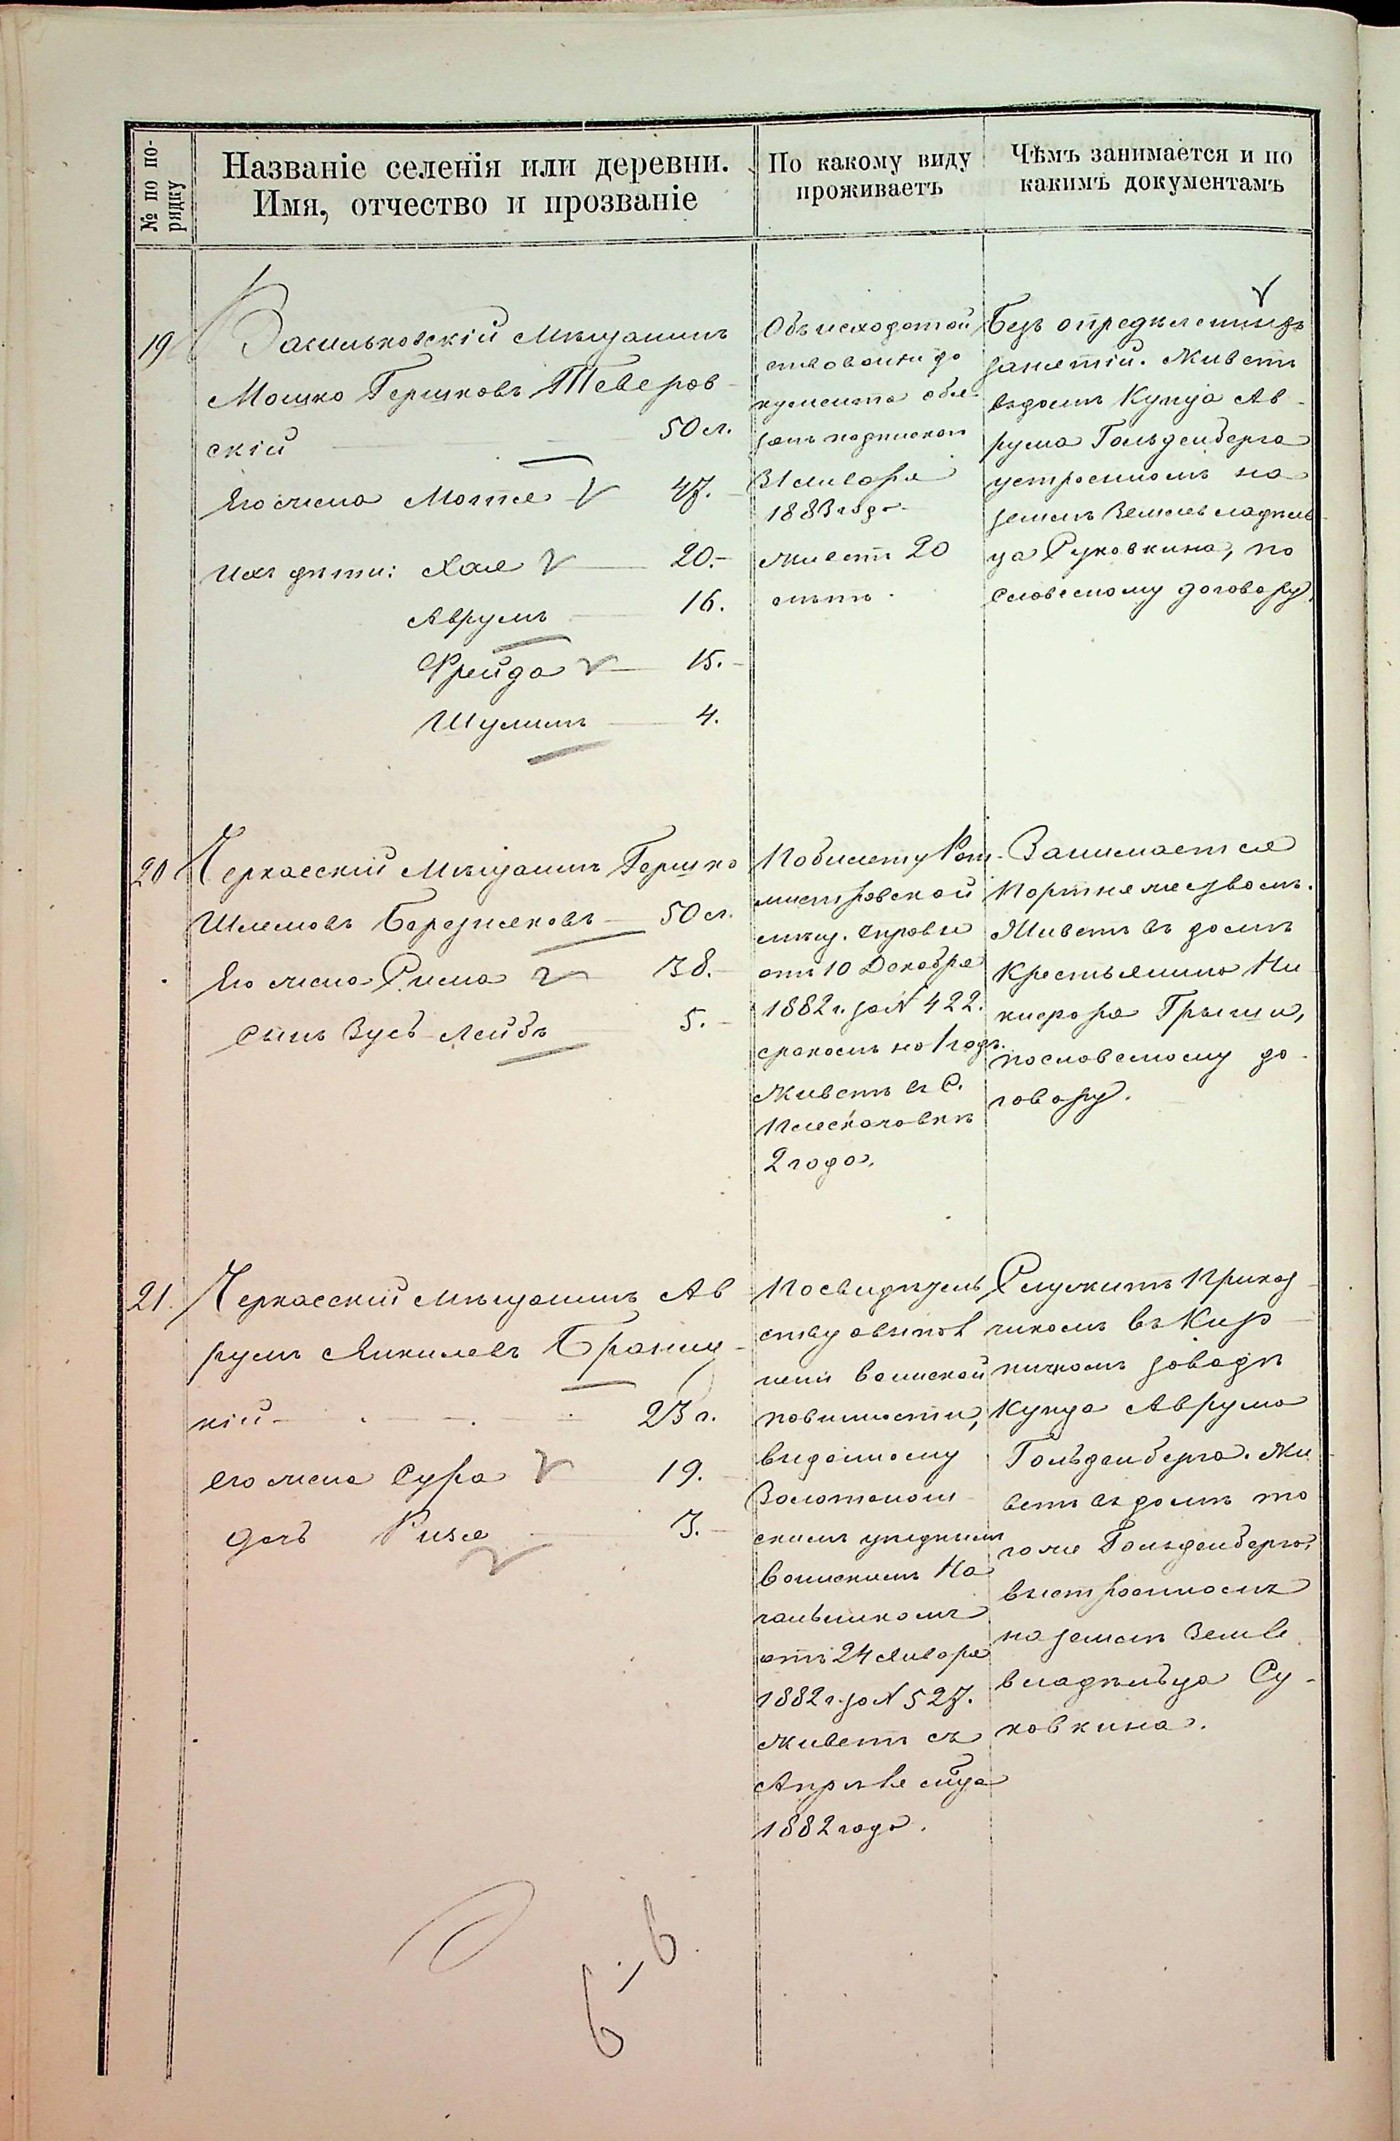 № по по-
рядку
Названіе селенія или деревни.
Имя, отчество и прозваніе
По какому виду
проживаетъ
Чѣмъ занимается и по
какимъ документамъ
19
Васильковскій Мѣщанинъ
Мошко Гершковъ Теверов-
скій 50 л.
Его жена Мотля 47.
Ихъ дѣти: Хая 20.
Аврумъ 16.
Фрейда 15.
Шулимъ 4.
Объ исходотай
ствованіи до
кумента обя-
занъ подпискою
31 Января
1883 года
Живетъ 20
лѣтъ.
Безъ опредѣленныхъ
занятій. Живетъ
въ домѣ Купца Ав-
рума Гольденберга
устроенномъ на
землѣ Землевладѣль
ца Суковкина, по
словесному договору.
20
Черкасскій Мѣщанинъ Гершко
Шлемовъ Березняковъ 50 л.
Его жена Рися 38.
Сынъ Зусь-Лейбъ 5.
По билету Рот-
мистровской
мѣщ. управы
отъ 10 Декабря
1882 г. за № 422.
срокомъ на 1 годъ.
Живетъ въ С.
Плескачовкѣ
2 года.
Занимается
Портняжествомъ.
Живетъ въ домѣ
Крестьянина Ни
кифора Грыши,
по словесному до-
говору.
21.
Черкасскій мѣщанинъ Ав
румъ Янкилевъ Браниц-
кій 23 г.
его жена Сура 19.
дочь Рися 3.
По свидѣтель
ству о выпол
неніи воинской
повинности,
выданному
Золотонош
скимъ уѣзднымъ
воинскимъ На
чальникомъ
отъ 24 Января
1882 г. за № 527.
Живетъ съ
Апрѣля м-ца
1882 года.
Служитъ Приказ
чикомъ въ Кир
пичномъ заводѣ
Купца Аврума
Гольденберга. Жи
ветъ въ домѣ то
го же Гольденберга,
выстроенномъ
на землѣ Земле
владѣльца Су-
ковкина.
6-6.